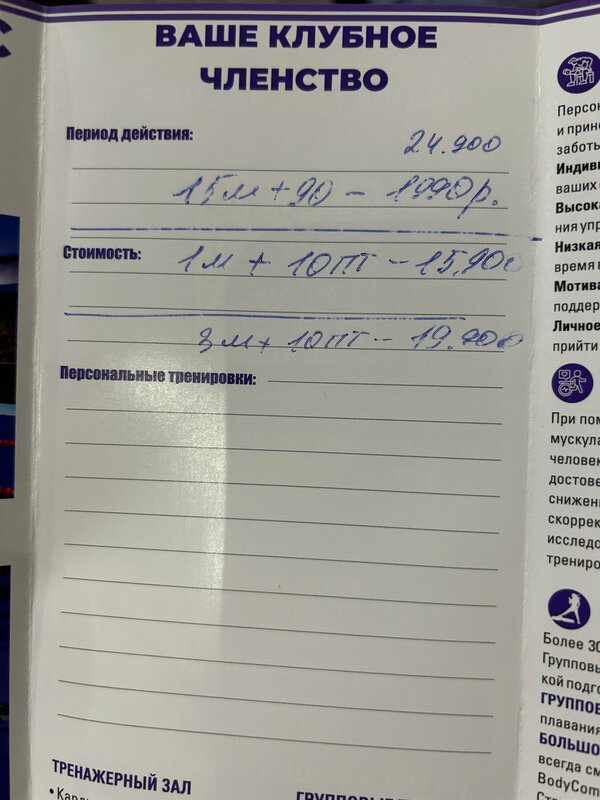 ВАШЕ КЛУБНОЕ
ЧЛЕНСТВО
Период действия:
24.900
15м + 90 – 1990р.
Стоимость:
1м + 10ПТ – 15.900
3м + 10ПТ – 19.900
Персональные тренировки:
ТРЕНАЖЕРНЫЙ ЗАЛ
Персо
и прин
заботь
Индив
ваших
Высока
ния упр
Низкая
время в
Мотива
поддер
Личное
прийти
При пом
мускула
человек
достове
снижени
скоррек
исследо
трениро
Более 30
Групповы
кой подго
ГРУППОВ
плавания
БОЛЬШО
всегда см
BodyCom